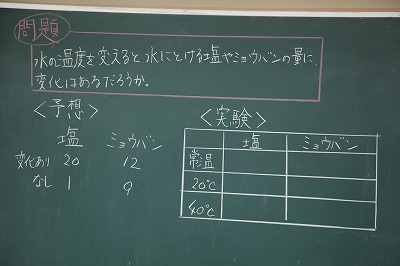 問題
水の温度を変えると、水にとける塩やミョウバンの量に、
変化はあるだろうか。
＜予想＞
塩 ミョウバン
変化あり 20 12
なし 1 9
＜実験＞
塩 ミョウバン
常温
20℃
40℃